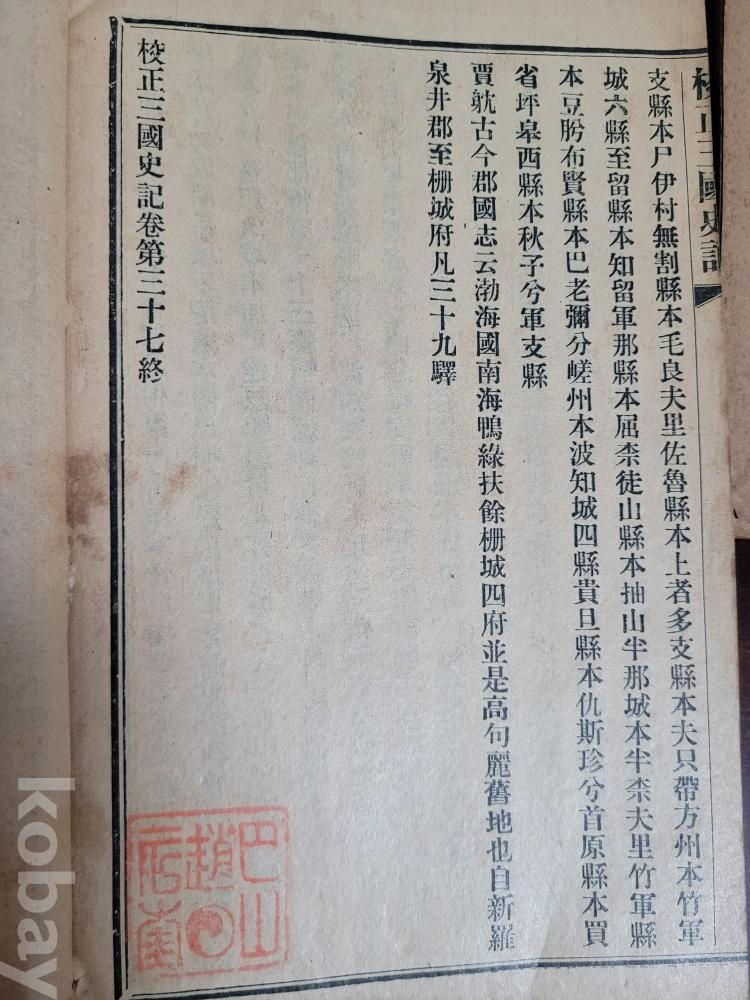 校正三國史記
支縣本尸伊村無割縣本毛良夫里佐魯縣本上者多支縣本夫只帶方州本竹軍
城六縣至留縣本知留軍那縣本屈柰徒山縣本抽山半那城本半柰夫里竹軍縣
本豆肹布賢縣本巴老彌分嵯州本波知城四縣貴旦縣本仇斯珍兮首原縣本買
省坪皋西縣本秋子兮軍支縣
賈躭古今郡國志云渤海國南海鴨綠扶餘柵城四府並是高句麗舊地也自新羅
泉井郡至柵城府凡三十九驛
校正三國史記卷第三十七終
巴山
趙
kobay